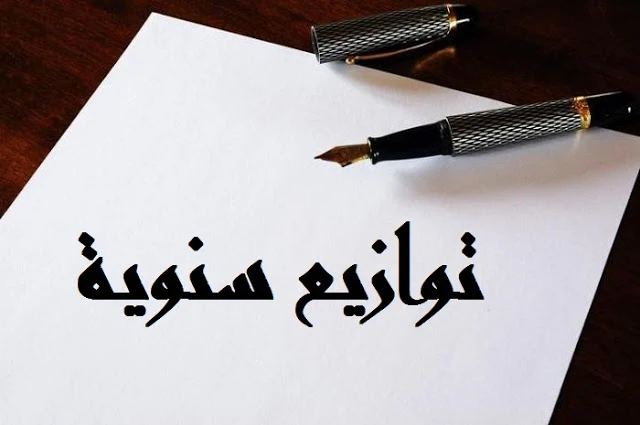 توازيع سنوية